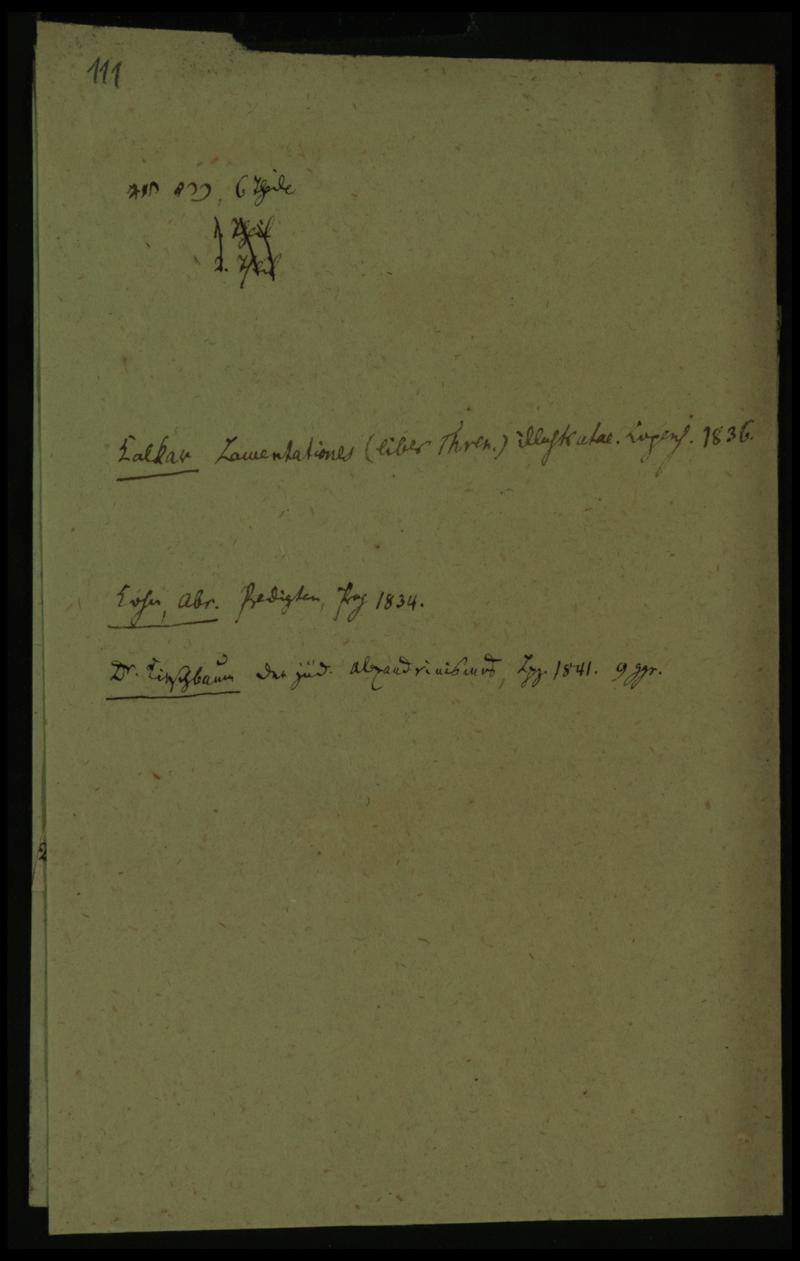 111
6 Theile
1 Theil
2. Theil
Kalkar Lamentationes (liber Thren.) illustratae. Kopenh. 1836.
Kohn, Abr. Predigten, Prag 1834.
Dr. Kirschbaum der jüd. Alexandrinismus, Lpz. 1841. 9 ggr.
2